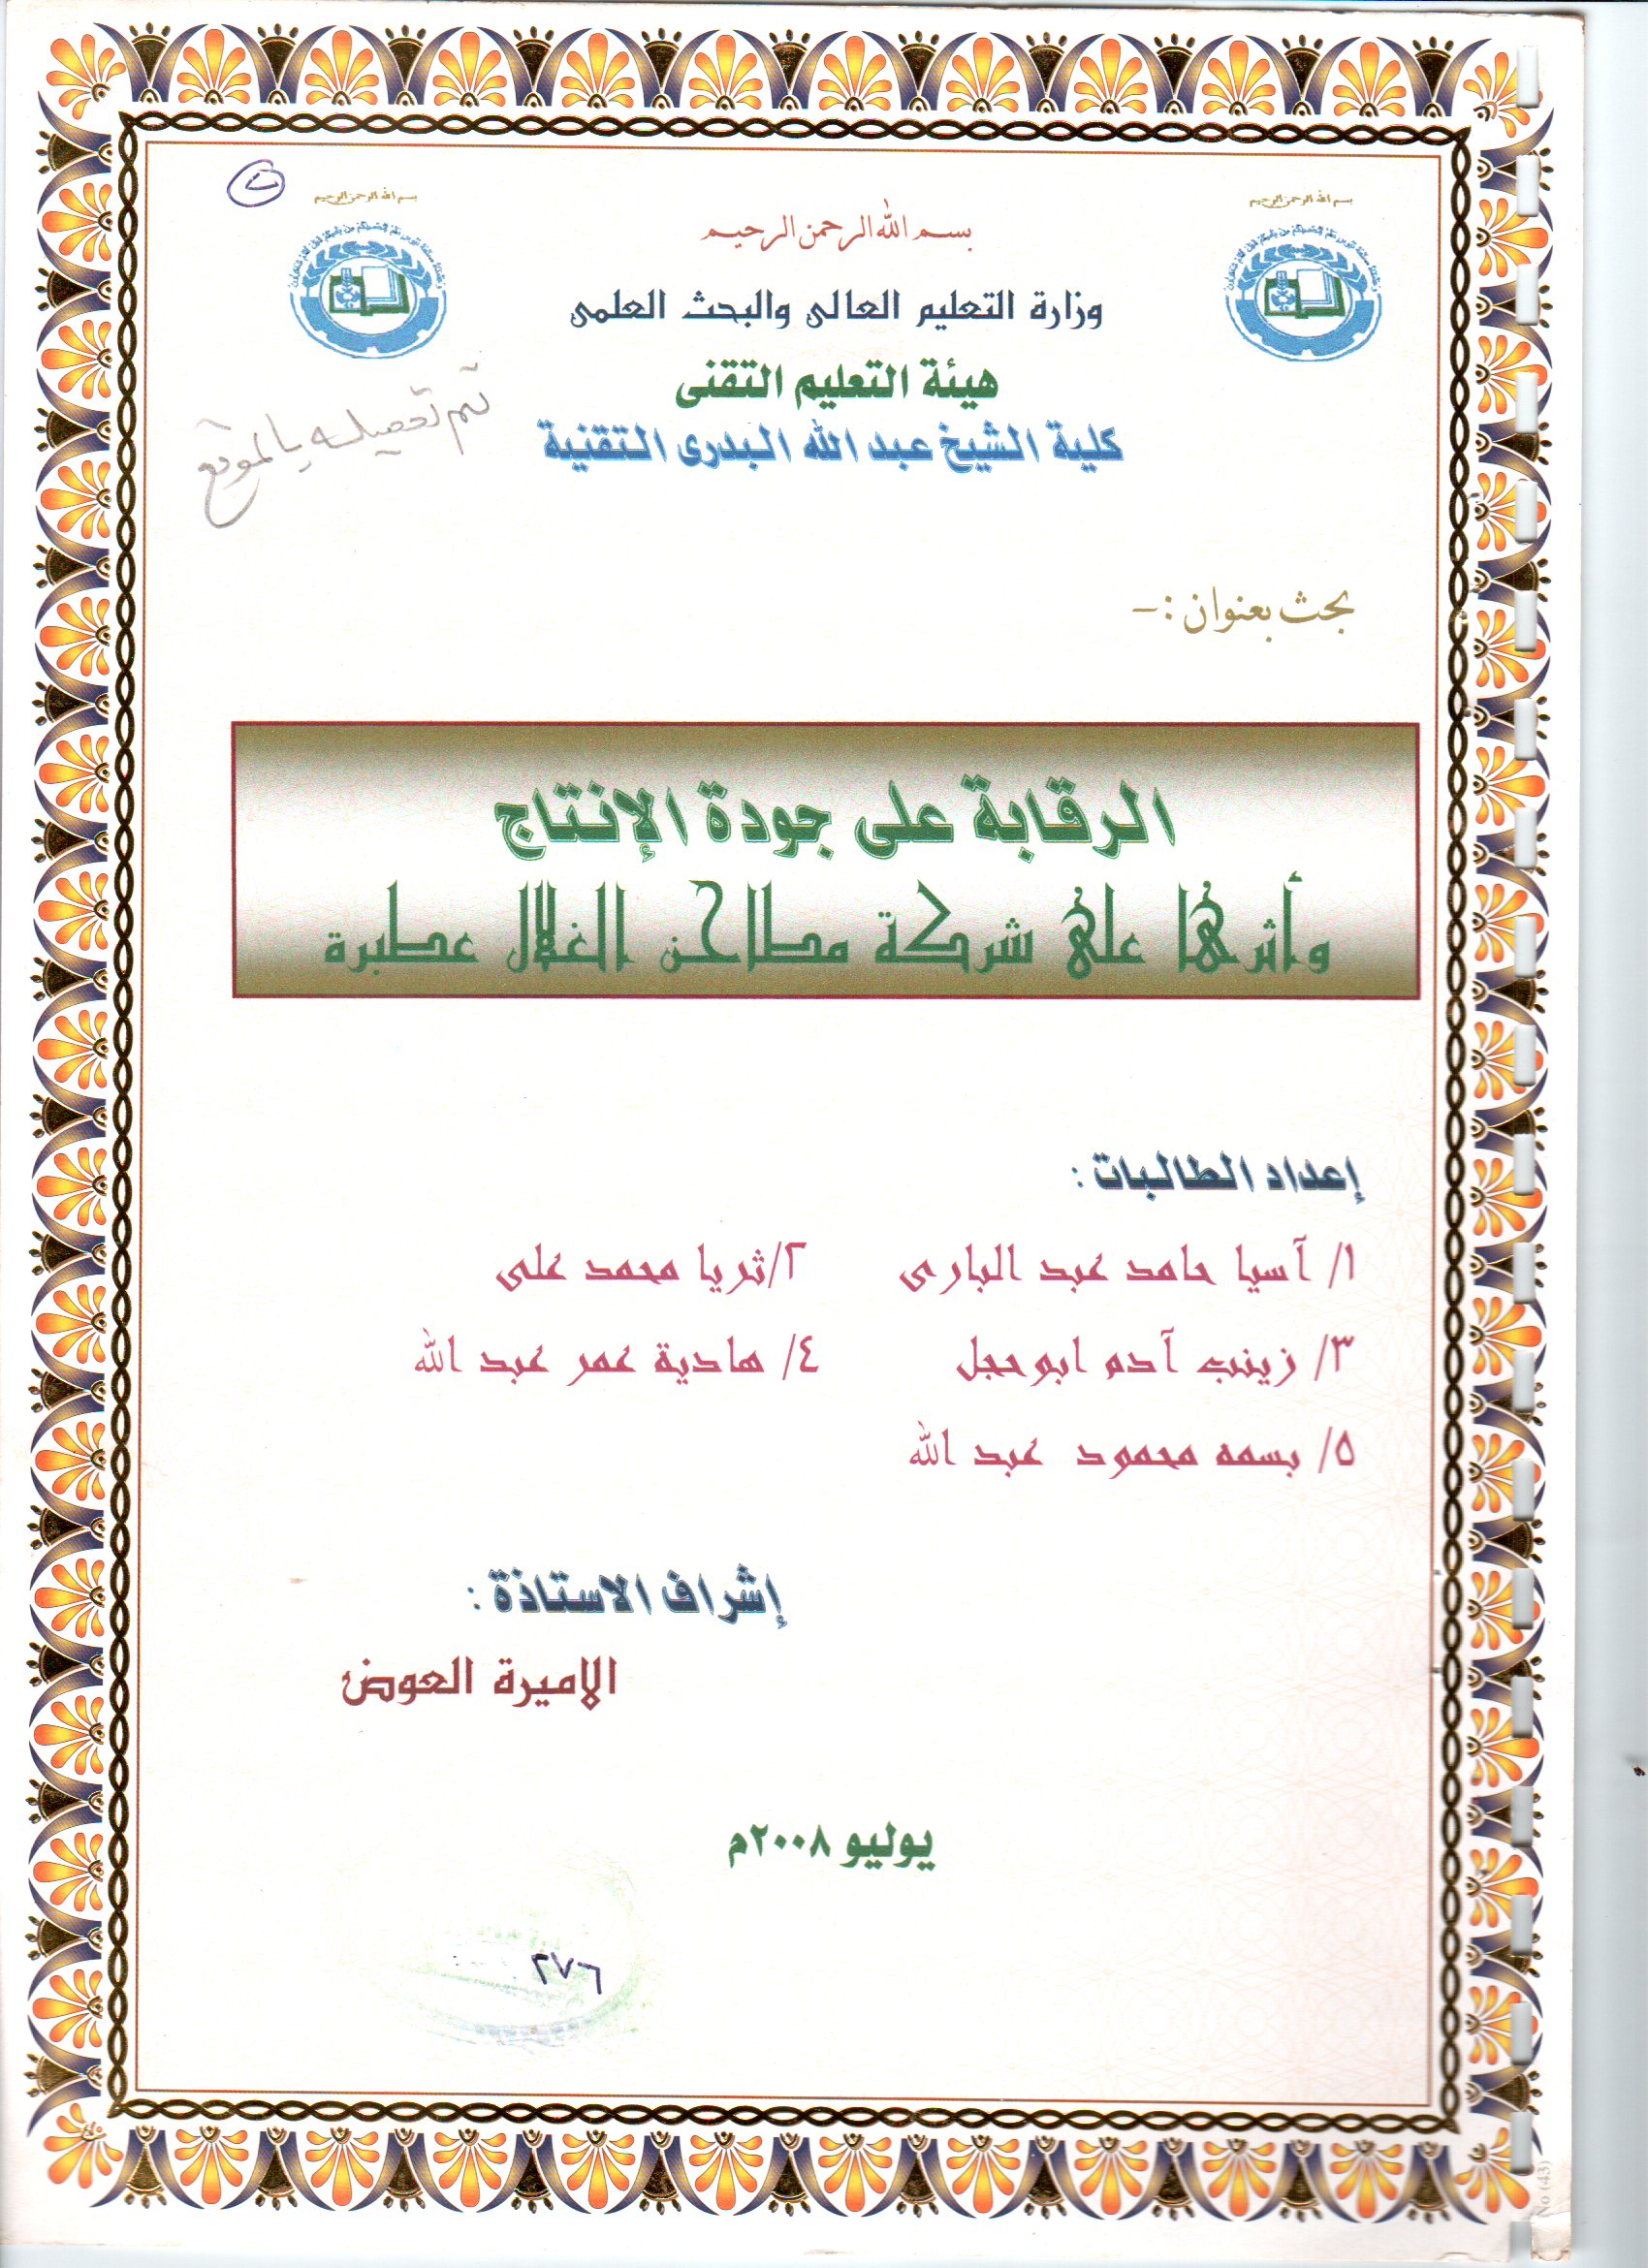 بسم الله الرحمن الرحيم
بسم الله الرحمن الرحيم
بسم الله الرحمن الرحيم
وزارة التعليم العالى والبحث العلمى
هيئة التعليم التقنى
كلية الشيخ عبد الله البدرى التقنية
تم تحميله بالموقع
بحث بعنوان :-
الرقابة على جودة الإنتاج
وأثرها على شركة مطاحن الغلال عطبرة
إعداد الطالبات :
١/ آسيا حامد عبد البارى ٢/ثريا محمد على
٣/ زينب آدم ابوحجل ٤/ هادية عمر عبد الله
٥/ بسمه محمود عبد الله
إشراف الاستاذة :
الاميرة العوض
يوليو ٢٠٠٨م
٢٧٦
No (43)